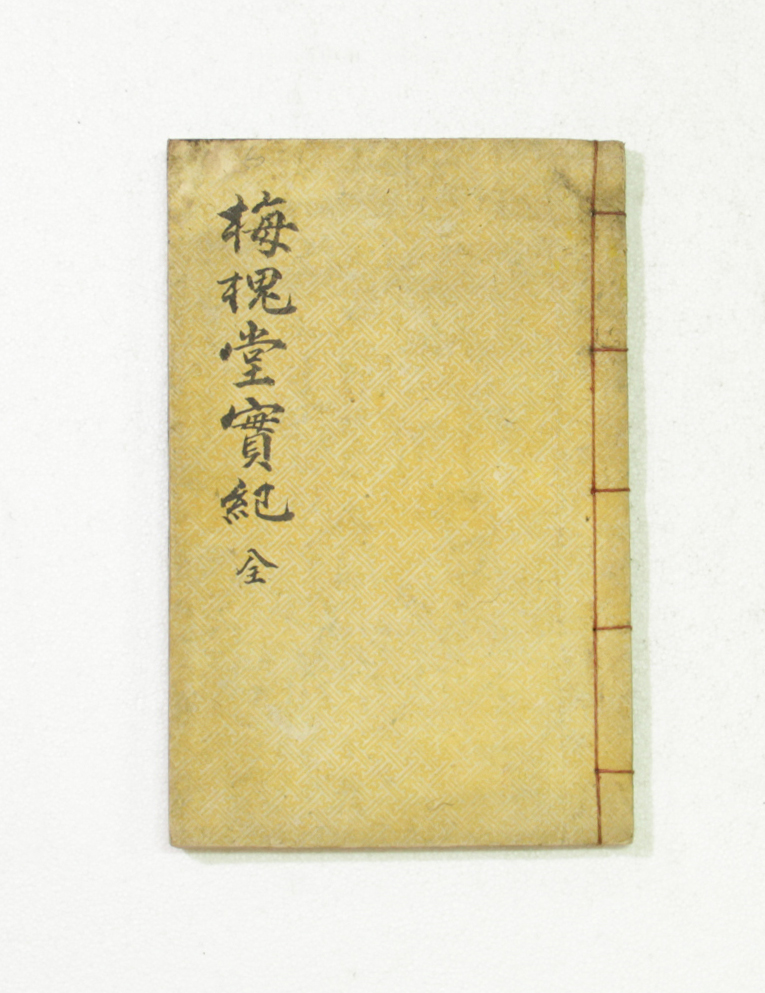 梅槐堂實紀 全